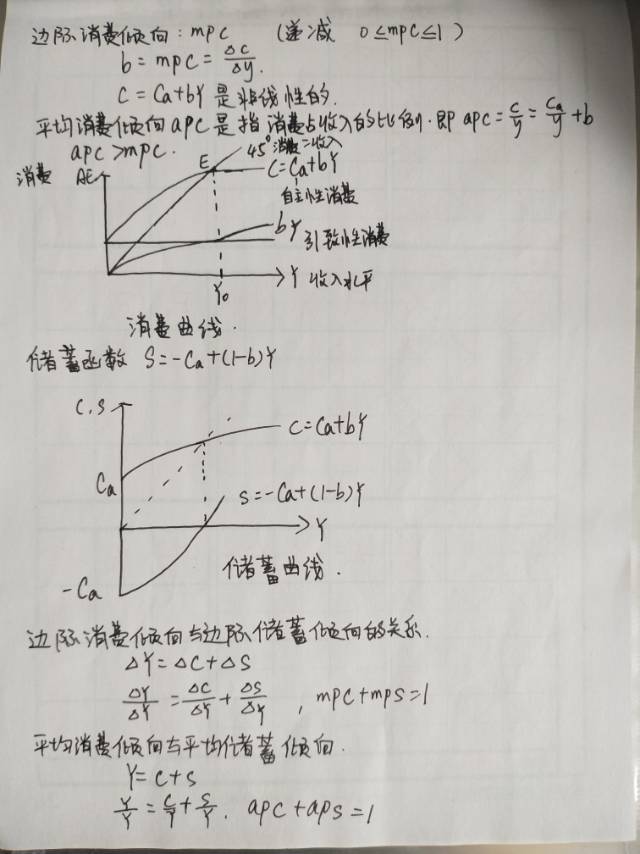 边际消费倾向：mpc （递减 0≤mpc≤1）
b = mpc = Δc/Δy.
C = Ca+bY 是非线性的.
平均消费倾向apc是指消费占收入的比例. 即 apc = c/y = Ca/y + b
apc > mpc.
45° 消费=收入
消费 AE
E
C=Ca+bY
自主性消费
bY
引致性消费
Y0
Y 收入水平
消费曲线.
储蓄函数 S=-Ca+(1-b)Y
C,S
C=Ca+bY
Ca
S=-Ca+(1-b)Y
Y
-Ca
储蓄曲线.
边际消费倾向与边际储蓄倾向的关系.
ΔY=ΔC+ΔS
ΔY/ΔY = ΔC/ΔY + ΔS/ΔY , mpc+mps=1
平均消费倾向与平均储蓄倾向.
Y=C+S
Y/Y = C/Y + S/Y. apc+aps=1